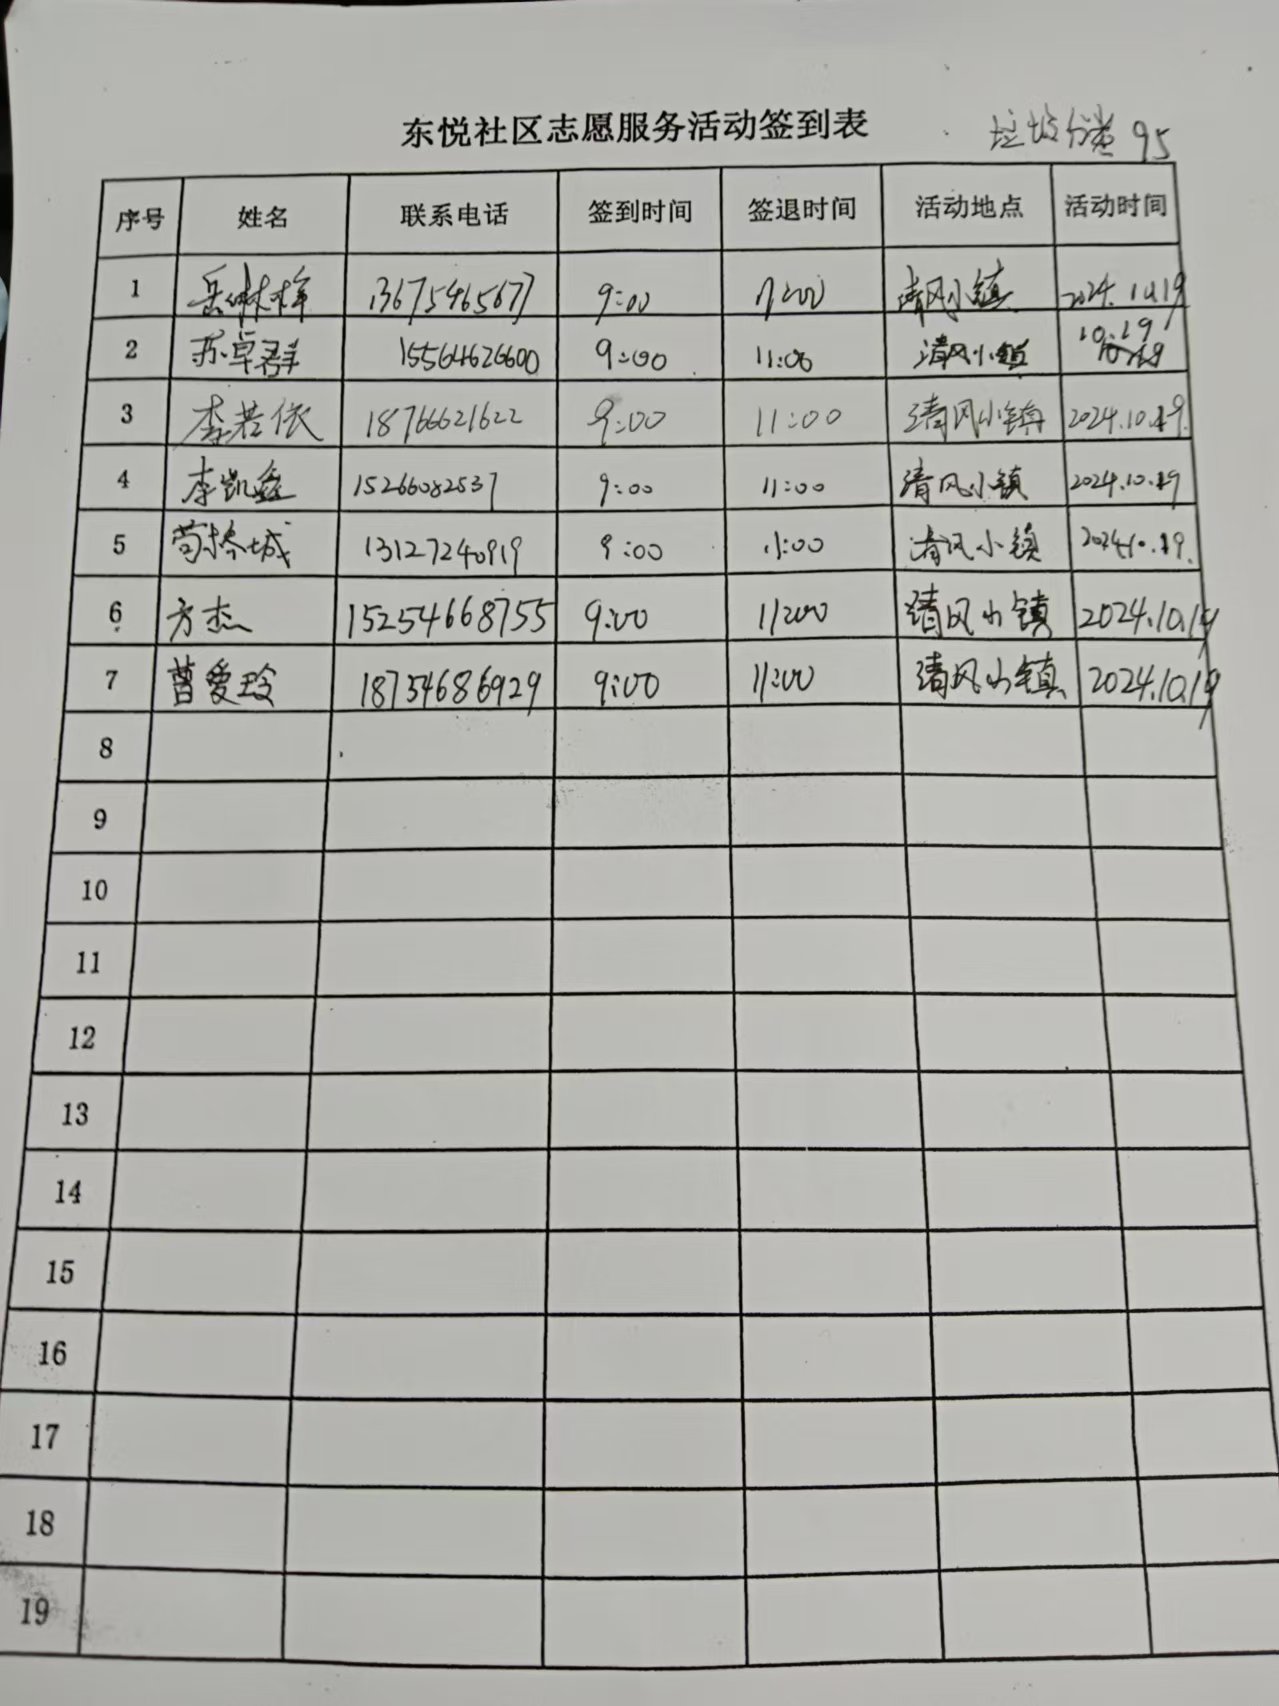 东悦社区志愿服务活动签到表 垃圾分类 95
序号 姓名 联系电话 签到时间 签退时间 活动地点 活动时间
1 13675465677 9:00 11:00 清风小镇 2024.10.19
2 苏卓群 15564626600 9:00 11:00 清风小镇 10.19
3 李若依 18766621622 9:00 11:00 清风小镇 2024.10.19.
4 李凯鑫 15266082537 9:00 11:00 清风小镇 2024.10.19
5 13127240919 9:00 11:00 清风小镇 2024.10.19.
6 方杰 15254668755 9:00 11:00 清风小镇 2024.10.19
7 曹爱玲 18754686929 9:00 11:00 清风小镇 2024.10.19
8
9
10
11
12
13
14
15
16
17
18
19